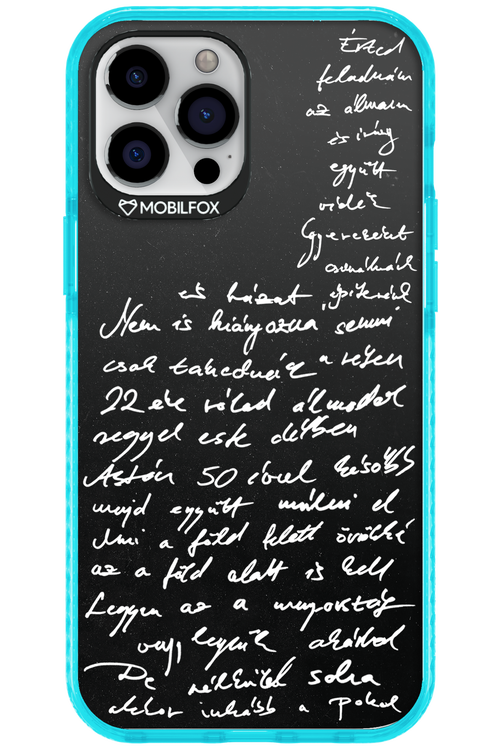 MOBILFOX
Érted
feladnám
az álmam
és így
együtt
vidék
Gyerekeket
csinálnánk
és házat építenénk
Nem is hiányozna semmi
csak takednánk a réten
22 éve rólad álmodok
reggel este délben
Aztán 50 évvel később
majd együtt múlni el
Ami a föld felett örökké
az a föld alatt is kell
Legyen az a mennyország
vagy legyünk akárhol
De nélküled soha
akkor inkább a Pokol